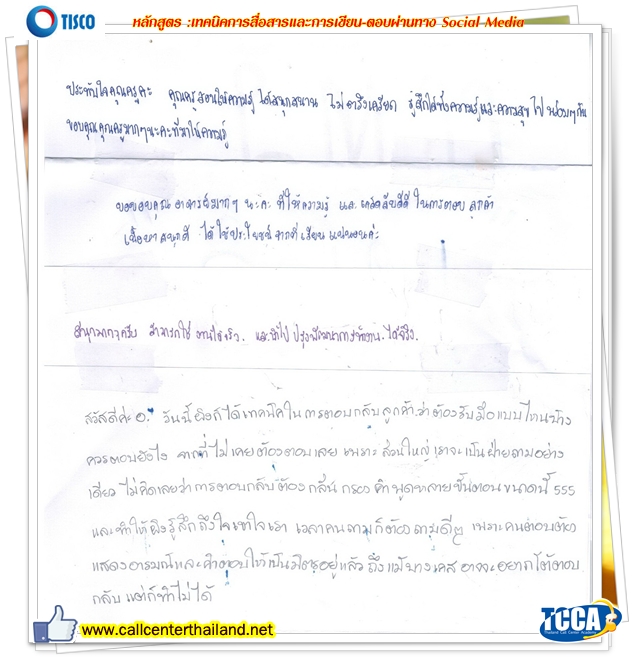 TISCO
หลักสูตร :เทคนิคการสื่อสารและการเขียน-ตอบผ่านทาง Social Media
ประทับใจคุณครูค่ะ คุณครูสอนให้ความรู้ ได้สนุกสนาน ไม่ตึงเครียด รู้สึกได้ทั้งความรู้และความสุขไปพร้อมๆกัน
ขอบคุณคุณครูมากๆนะคะที่มาให้ความรู้
ขอขอบคุณ อาจารย์มากๆ นะคะ ที่ให้ความรู้ และ เคล็ดลับดีดี ในการตอบ ลูกค้า
เนื้อหา สนุกดี ได้ใช้ประโยชน์ จากที่ เรียน แน่นอนค่ะ
สนุกมากๆครับ สามารถใช้ งานได้จริง. และนำไป ปรุงพัฒนาการทำงาน. ได้จริง.
สวัสดีค่ะ อ. วันนี้ผึ้งก็ได้เทคนิคในการตอบกลับลูกค้า ว่าต้องรับมือแบบไหนบ้าง
ควรตอบยังไง จากที่ไม่เคยต้องตอบเลย เพราะส่วนใหญ่เราจะเป็นฝ่ายถามอย่าง
เดียว ไม่คิดเลยว่าการตอบกลับต้องกลั่นกรองคำพูดหลายขั้นตอนขนาดนี้ 555
และทำให้ผึ้งรู้สึกถึงใจเขาใจเรา เวลาคนถามก็ต้องถามดีๆ เพราะคนตอบต้อง
แสดงอารมณ์และคำตอบให้เป็นมิตรอยู่แล้ว ถึงแม้บางเคส อาจจะอยากโต้ตอบ
กลับ แต่ก็ทำไม่ได้
www.callcenterthailand.net
TCCA
Thailand Call Center Academy